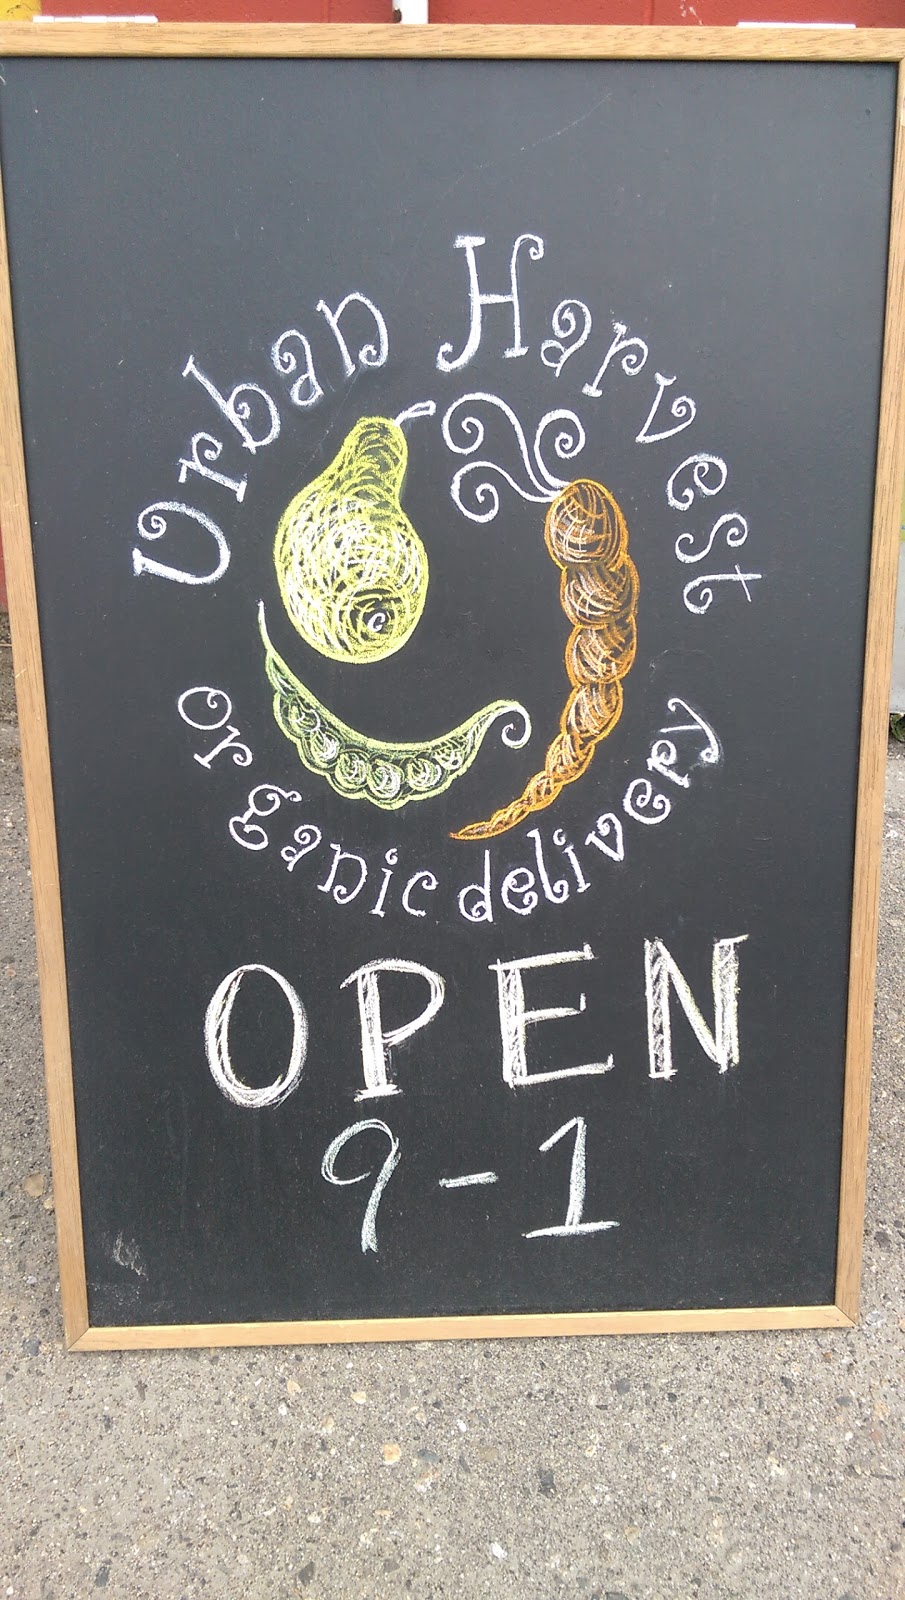 Urban Harvest
organic delivery
OPEN
9-1